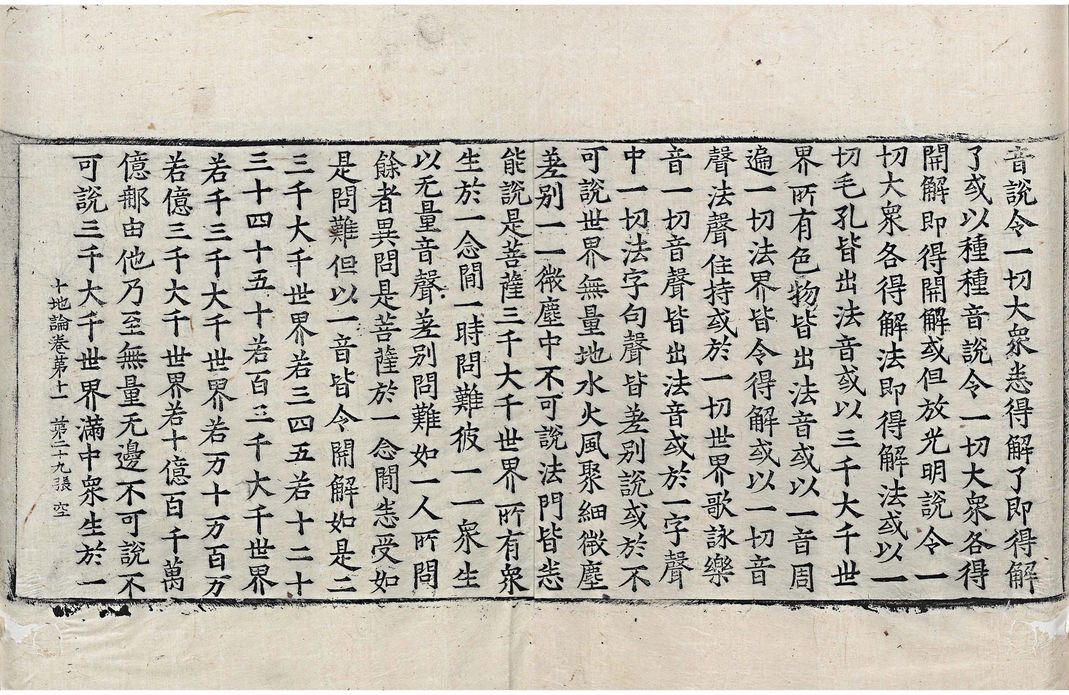 音說令一切大衆悉得解了即得解
了或以種種音說令一切大衆各得
開解即得開解或但放光明說令一
切大衆各得解法即得解法或以一
切毛孔皆出法音或以三千大千世
界所有色物皆出法音或以一音周
遍一切法界皆令得解或以一切音
聲法聲住持或於一切世界歌詠樂
音一切音聲皆出法音或於一字聲
中一切法字句聲皆差別說或於不
可說世界無量地水火風聚細微塵
差別一一微塵中不可說法門皆悉
能說是菩薩三千大千世界所有衆
生於一念間一時問難彼一一衆生
以无量音聲差別問難如一人所問
餘者異問是菩薩於一念間悉受如
是問難但以一音皆令開解如是二
三千大千世界若三四五若十二十
三十四十五十若百三千大千世界
若千三千大千世界若万十万百万
若億三千大千世界若十億百千萬
億那由他乃至無量无邊不可說不
可說三千大千世界滿中衆生於一
十地論卷第十一 第二十九張 空